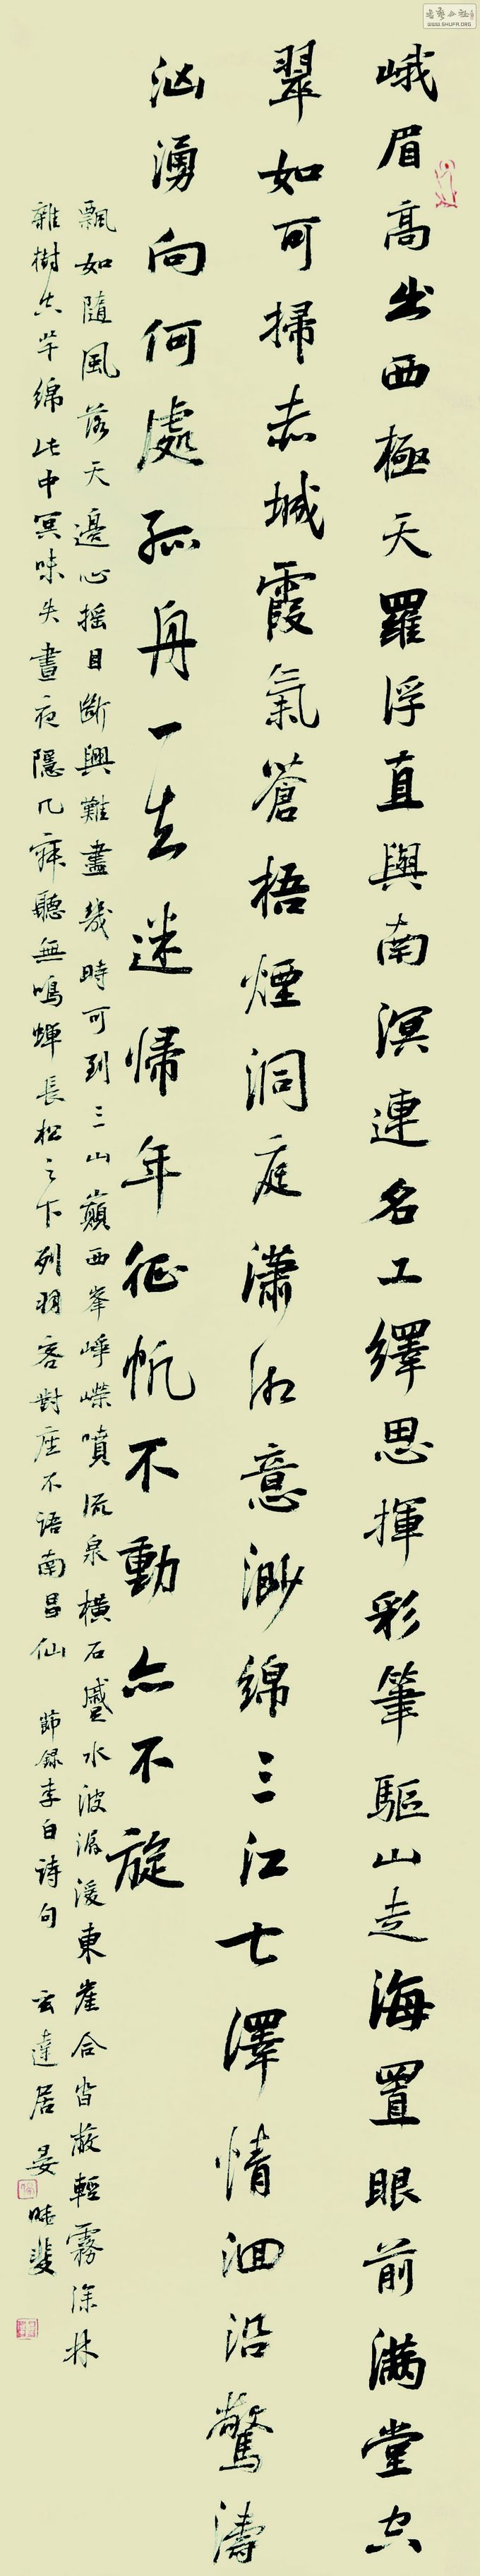 峨眉高出西極天羅浮直與南溟連名工繹思揮彩筆驅山走海置眼前滿堂空
翠如可掃赤城霞氣蒼梧煙洞庭瀟湘意渺綿三江七澤情洄沿驚濤
洶湧向何處孤舟一去迷歸年征帆不動亦不旋
飄如隨風落天邊心搖目斷興難盡幾時可到三山巔西峯崢嶸噴流泉橫石蹙水波潺湲東崖合沓蔽輕霧深林
雜樹空芊綿此中冥昧失晝夜隱几寂聽無鳴蟬長松之下列羽客對座不語南昌仙 節錄李白詩句 玄達居 晏
書法公社
WWW.SHUFA.ORG